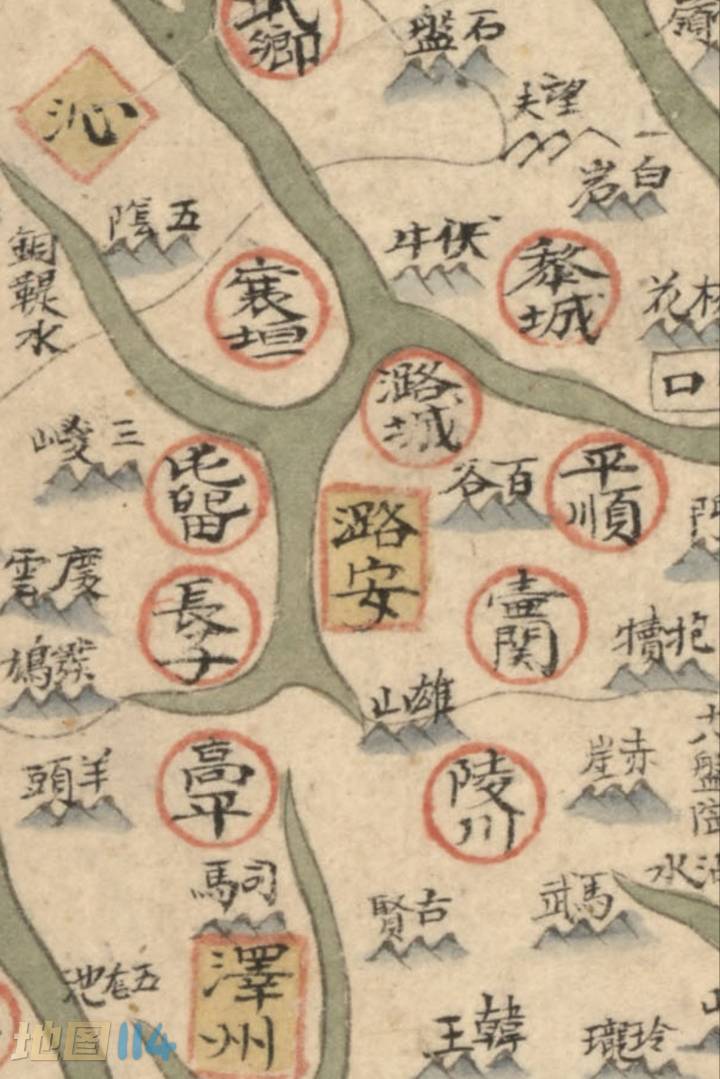 武鄉
石盤
沁
望夫
白岩
五陰
伏牛
銅鞮水
襄垣
黎城
潞城
口
三嵕
屯留
百谷
平順
潞安
慶雲
長子
壺関
雄山
羊頭
高平
陵川
赤崖
司馬
古賢
馬武
澤州
韓王
玲瓏
地图114